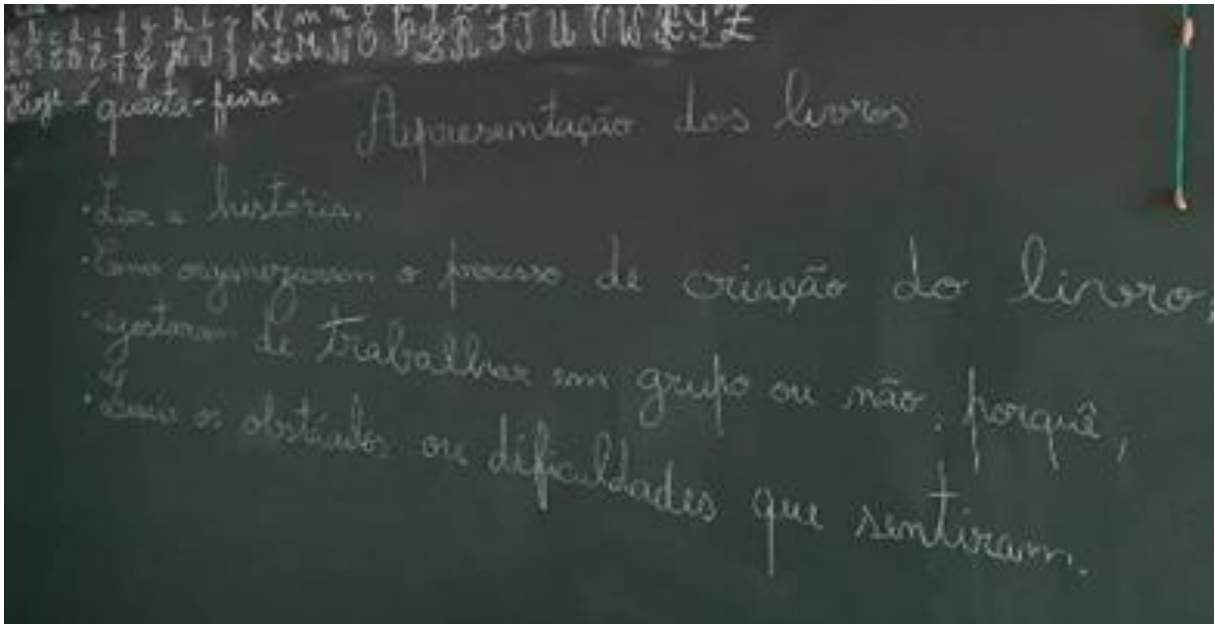 K L M N O P Q R S T U V W X Y Z
Hoje é quarta-feira
Apresentação dos livros
· Ler a história.
· Como organizaram o processo de criação do livro;
· gostaram de trabalhar em grupo ou não, porquê;
· Quais os obstáculos ou dificuldades que sentiram.